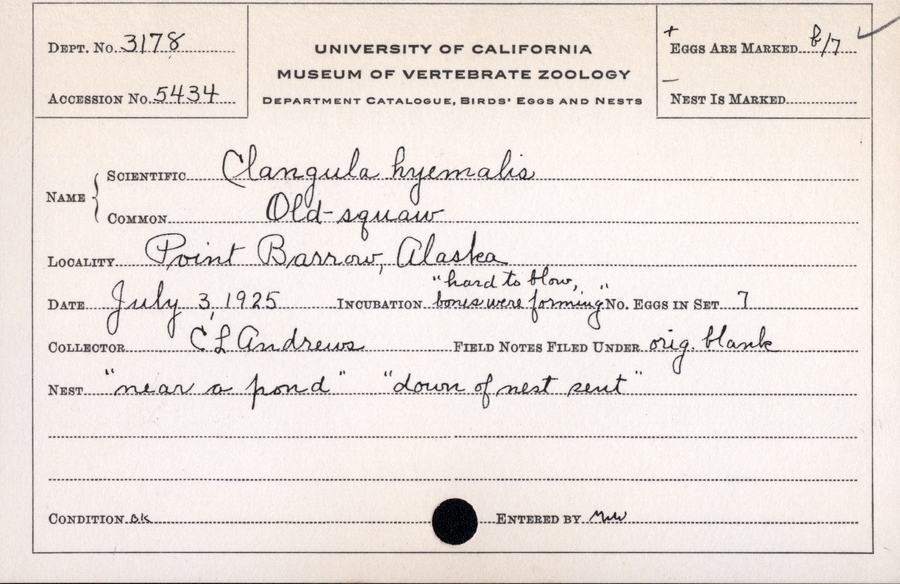 Dept. No. 3178
Accession No. 5434
UNIVERSITY OF CALIFORNIA
MUSEUM OF VERTEBRATE ZOOLOGY
Department Catalogue, Birds' Eggs and Nests
+
Eggs Are Marked b/7 ✓
–
Nest Is Marked
Name { Scientific Clangula hyemalis
Common Old-squaw
Locality Point Barrow, Alaska
Date July 3, 1925 Incubation "hard to blow, bones were forming" No. Eggs in Set 7
Collector C L Andrews Field Notes Filed Under orig. blank
Nest "near a pond" "down of nest sent"
Condition OK Entered by